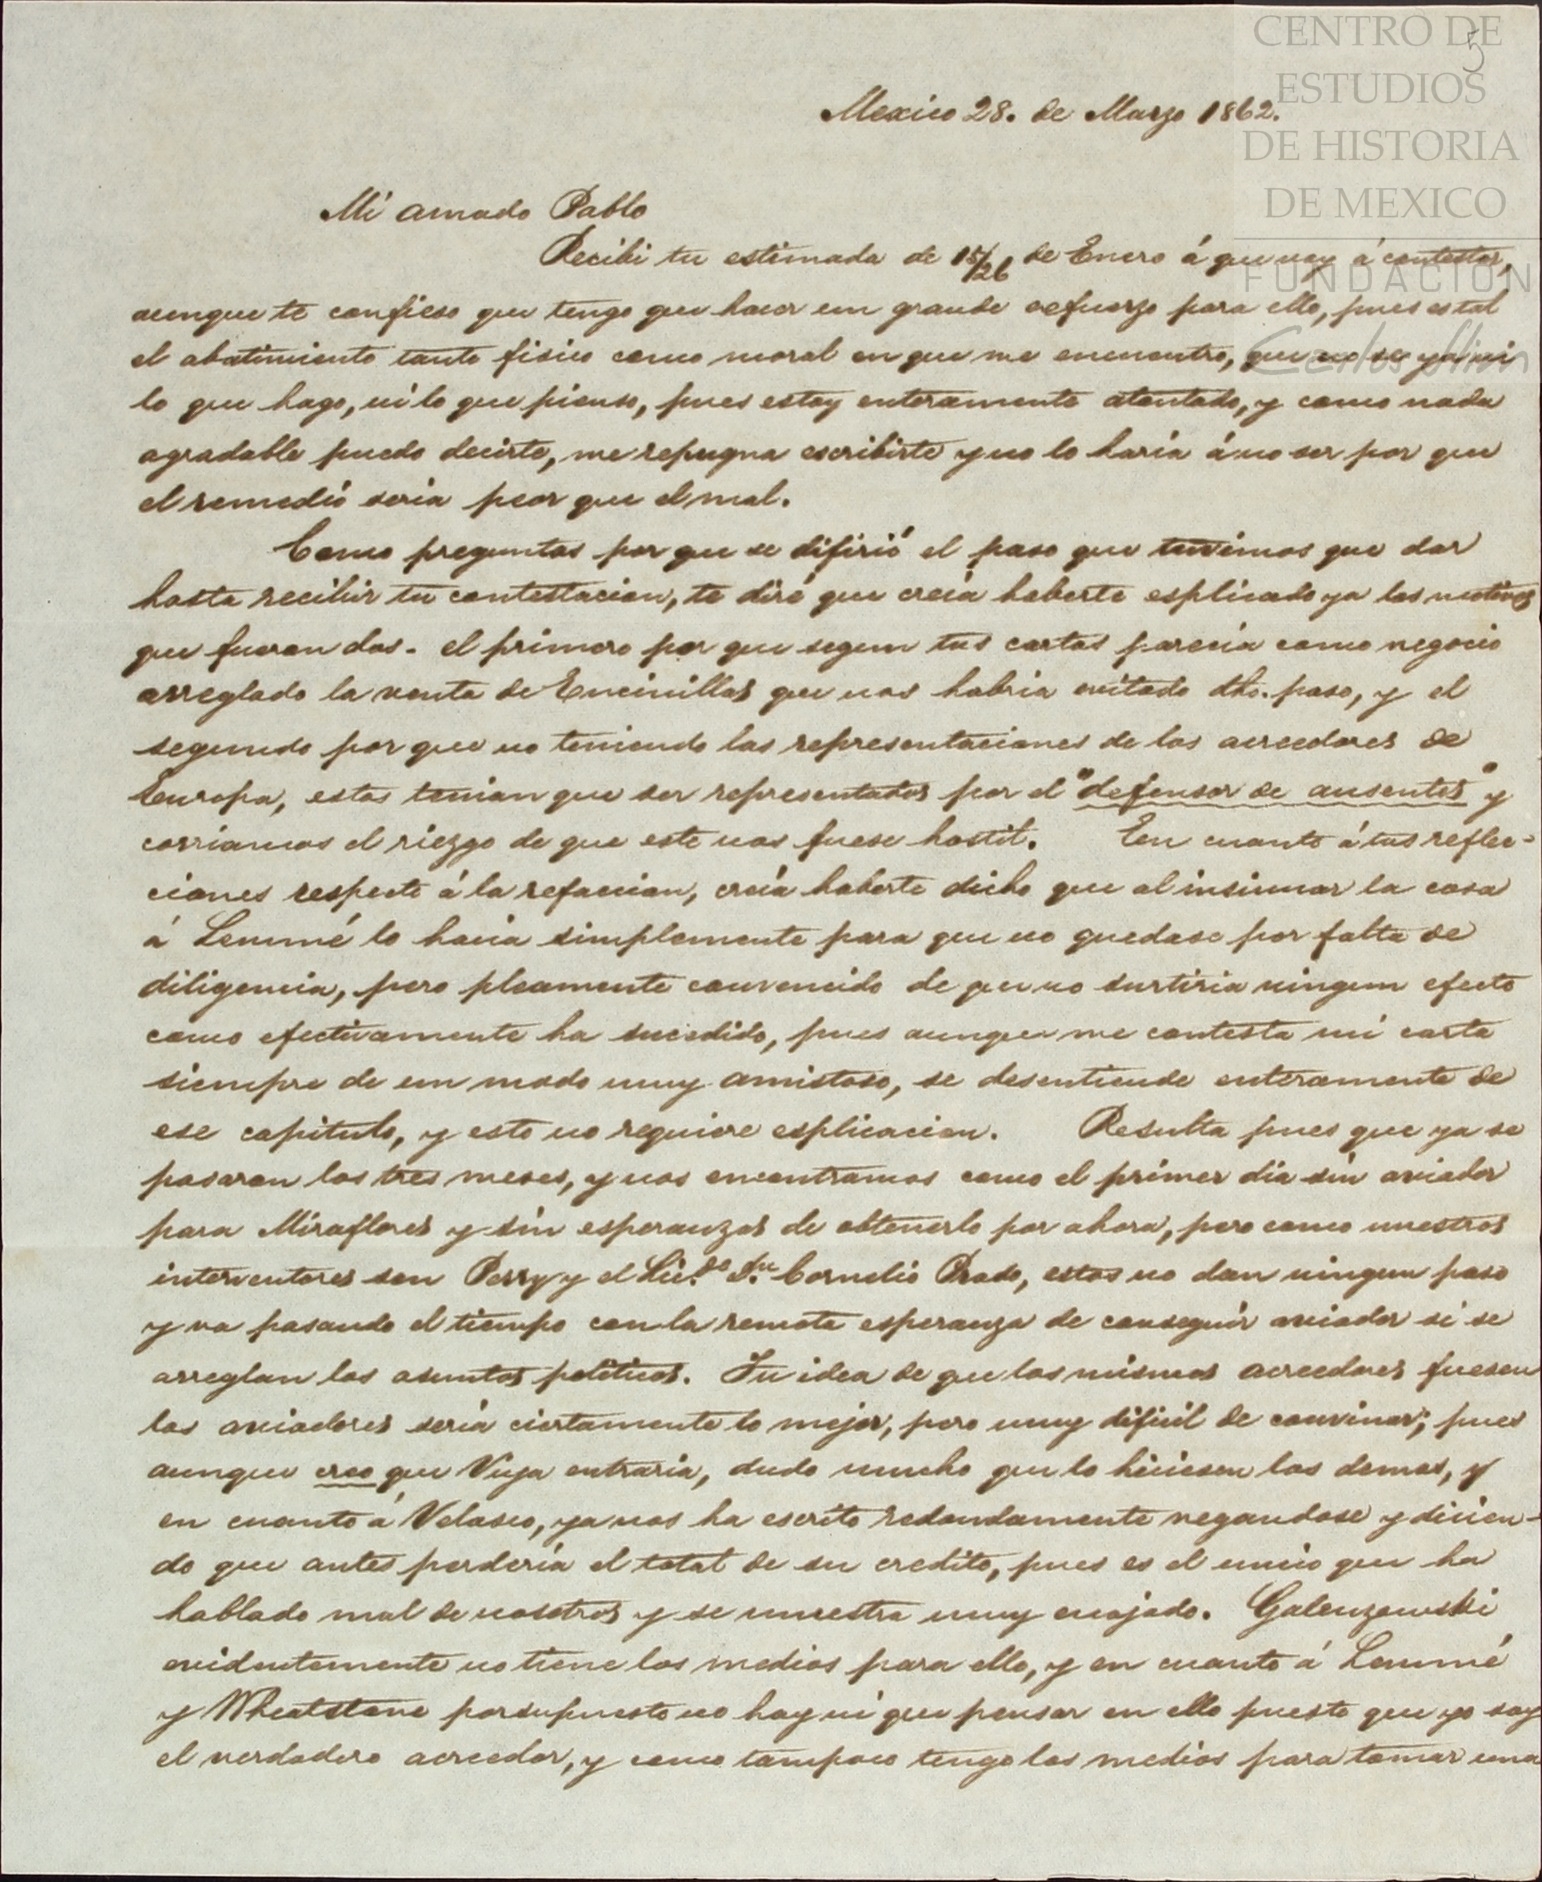 CENTRO DE
ESTUDIOS
DE HISTORIA
DE MEXICO
FUNDACIÓN
Carlos Slim
5
Mexico 28. de Marzo 1862.
Mi amado Pablo
Recibi tu estimada de 15/26 de Enero á que voy á contestar,
aunque te confieso que tengo que hacer un grande esfuerzo para ello, pues es tal
el abatimiento tanto fisico como moral en que me encuentro, que no se ya ni
lo que hago, ni lo que pienso, pues estoy enteramente atontado, y como nada
agradable puedo decirte, me repugna escribirte y no lo haría á no ser por que
el remedio seria peor que el mal.
Como preguntas por que se difirió el paso que tuvimos que dar
hasta recibir tu contestacion, te diré que creía haberte esplicado ya los motivos
que fueron dos. el primero por que segun tus cartas parecía como negocio
arreglado la venta de Encinillas que nos habria evitado dho. paso, y el
segundo por que no teniendo las representaciones de los acreedores de
Europa, estos tenian que ser representados por el "defensor de ausentes" y
corriamos el riezgo de que este nos fuese hostil. En cuanto á tus reflec-
ciones respecto á la refaccion, creía haberte dicho que al insinuar la cosa
á Lemmé lo hacia simplemente para que no quedase por falta de
diligencia, pero pleamente convencido de que no surtiria ningun efecto
como efectivamente ha sucedido, pues aunque me contesta mi carta
siempre de un modo muy amistoso, se desentiende enteramente de
ese capitulo, y esto no requiere esplicacion. Resulta pues que ya se
pasaron los tres meses, y nos encontramos como el primer dia sin aviador
para Miraflores y sin esperanzas de obtenerlo por ahora, pero como nuestros
interventores son Perry y el Lic.do Dn. Cornelio Prado, estos no dan ningun paso
y va pasando el tiempo con la remota esperanza de conseguir aviador si se
arreglan los asuntos politicos. Tu idea de que los mismos acreedores fuesen
los aviadores seria ciertamente lo mejor, pero muy dificil de convinar; pues
aunque creo que Viya entraria, dudo mucho que lo hiciesen los demas, y
en cuanto á Velasco, ya nos ha escrito redondamente negandose y dicien-
do que antes perdería el total de su credito, pues es el unico que ha
hablado mal de nosotros y se muestra muy enojado. Galenzowski
evidentemente no tiene los medios para ello, y en cuanto á Lemmé
y Wheatstone por supuesto no hay ni que pensar en ello puesto que yo soy
el verdadero acreedor, y como tampoco tengo los medios para tomar una